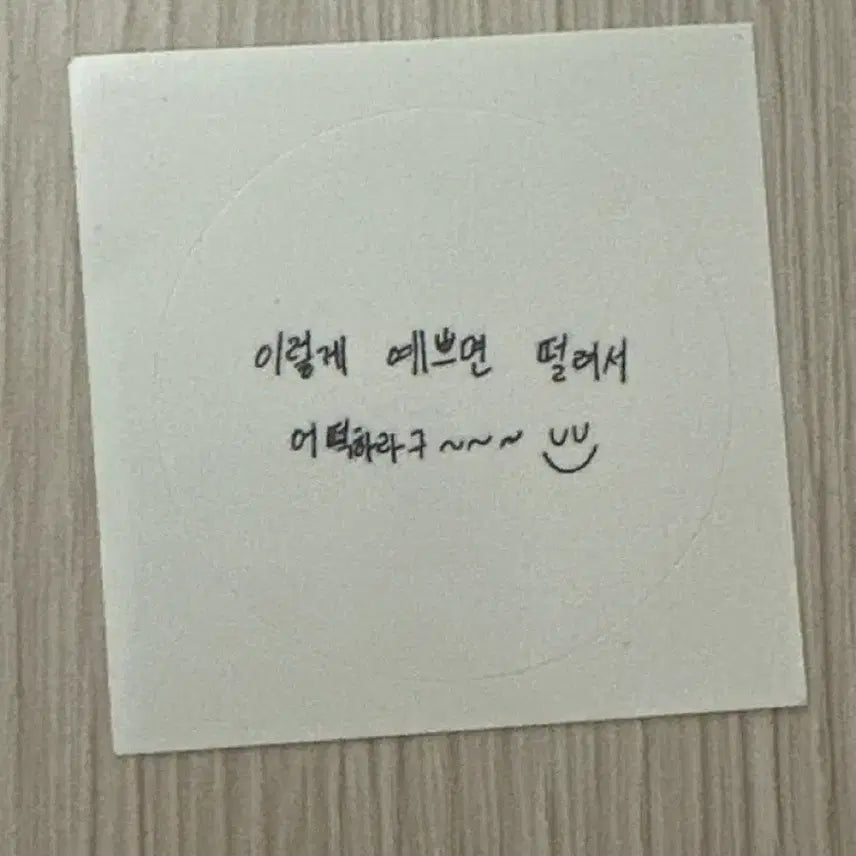 이렇게 예쁘면 떨려서
어떡하라구~~~